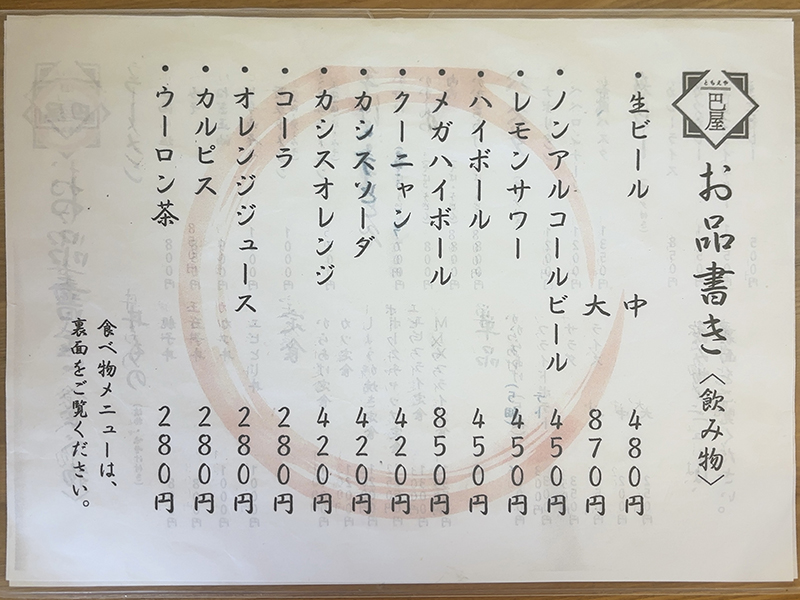 ともえや
巴屋
お品書き〈飲み物〉
・生ビール 中 480円
大 870円
・ノンアルコールビール 450円
・レモンサワー 450円
・ハイボール 450円
・メガハイボール 850円
・クーニャン 420円
・カシスソーダ 420円
・カシスオレンジ 420円
・コーラ 280円
・オレンジジュース 280円
・カルピス 280円
・ウーロン茶 280円
食べ物メニューは、
裏面をご覧ください。